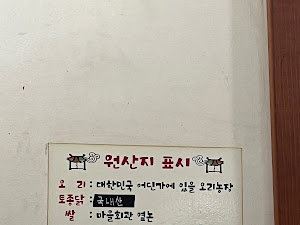 원산지 표시
오 리 : 대한민국 어딘가에 있을 오리농장
토종닭 : 국내산
쌀 : 마을회관 옆논